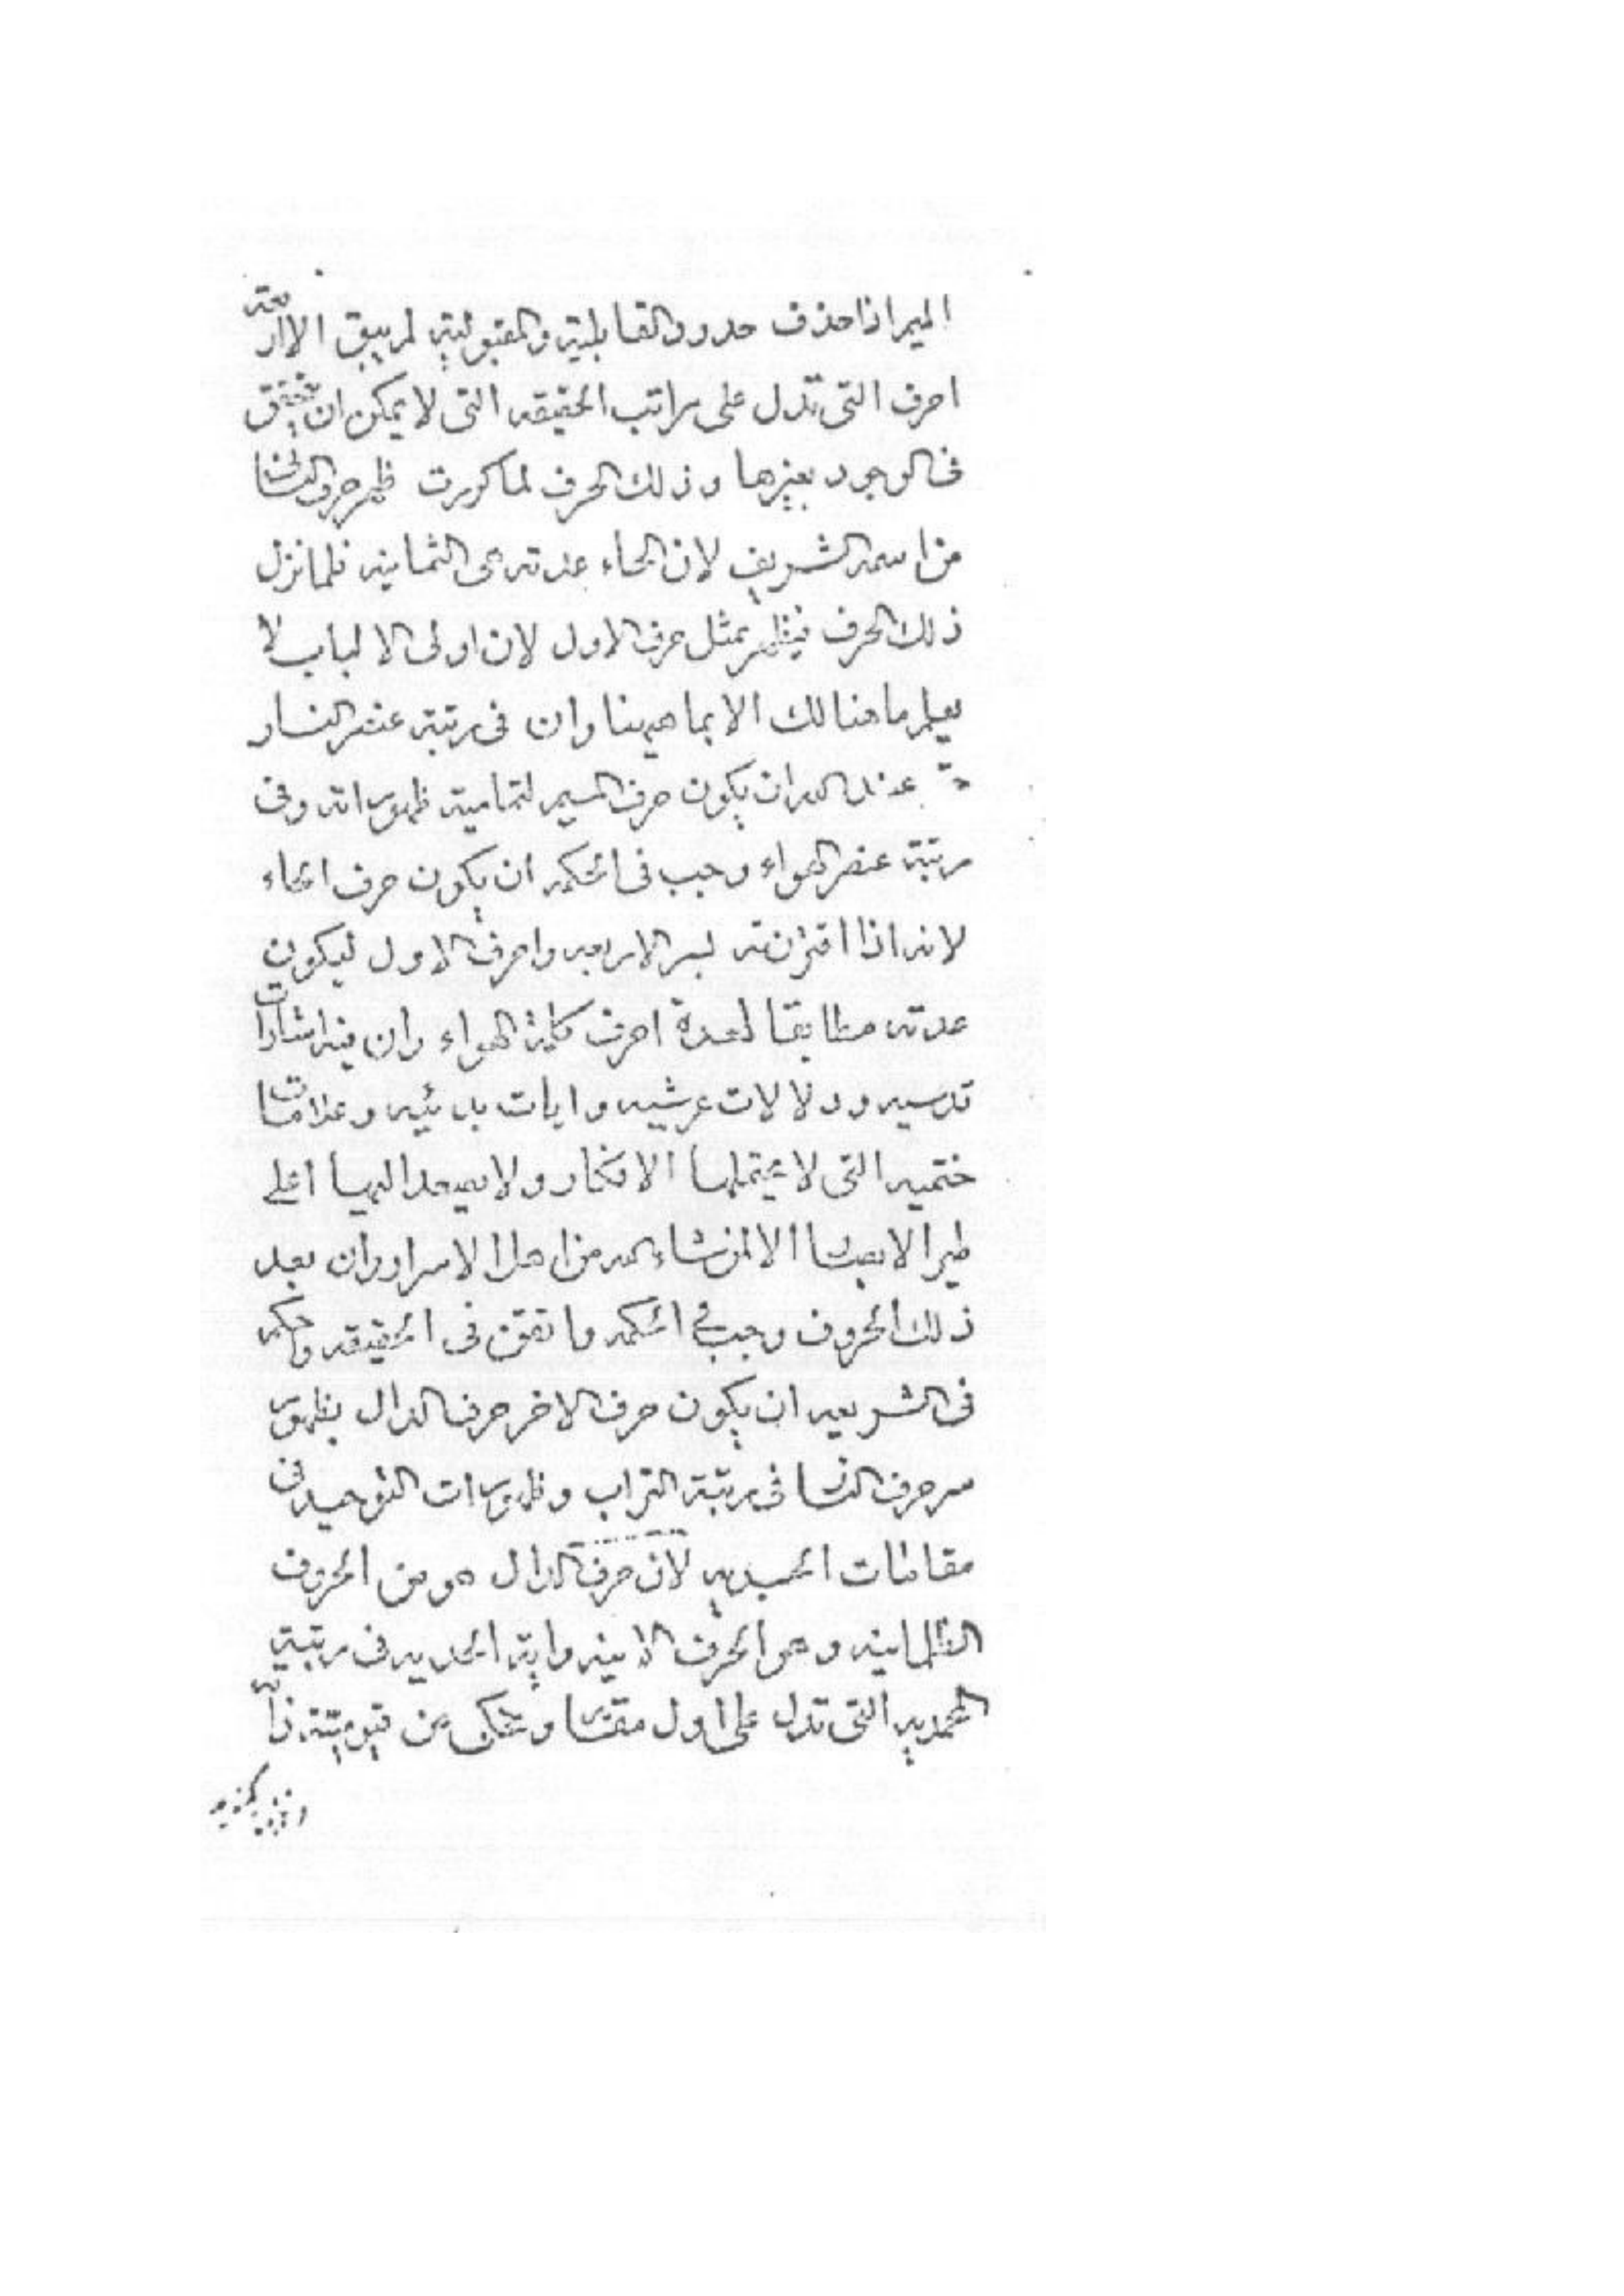 الميم اذا حذف حدود القابلية والمقبولية لم يبق الا اربعة
احرف التى تدل على مراتب الحقيقه التى لا يمكن ان يتحقق
فى الوجود بغيرها وذلك الحرف لما كررت ظهر حرف الثانى
من اسمه الشريف لان الحاء عدته هى الثمانيه فلما نزل
ذلك الحرف فيظهر بمثل حرف الاول لان اولى الالباب لا
يعلم ما هنالك الا بما هيهنا وان فى رتبة عنصر النار
حق عند الله ان يكون حرف الميم لتمامية ظهوراته وفى
رتبة عنصر الهواء وجب فى الحكمه ان يكون حرف الحاء
لانه اذا اقترنته بسر الاربعه واحرف الاول ليكون
عدته مطابقا لعدة احرف كلمة الهواء وان فيه اشارات
قدسيه ودلالات عرشيه وايات بدئيه وعلامات
ختميه التى لا يحتملها الافكار ولا يصعد اليها اعلى
طير الابصار الا لمن شاء الله من اهل الاسرار وان بعد
ذلك الحروف وجب فى الحكمه واتقن فى الحقيقه وحكم
فى الشريعه ان يكون حرف الاخر حرف الدال بظهور
سر حرف الثانى فى رتبة التراب وظهورات التوحيد فى
مقامات الحمديه لان حرف الدال هو من الحروف
الظلمانيه وهو الحرف الابنيه واية الحديه فى رتبة
المحمديه التى تدل على اول مقترنها وتحكى عن قيومية ذات